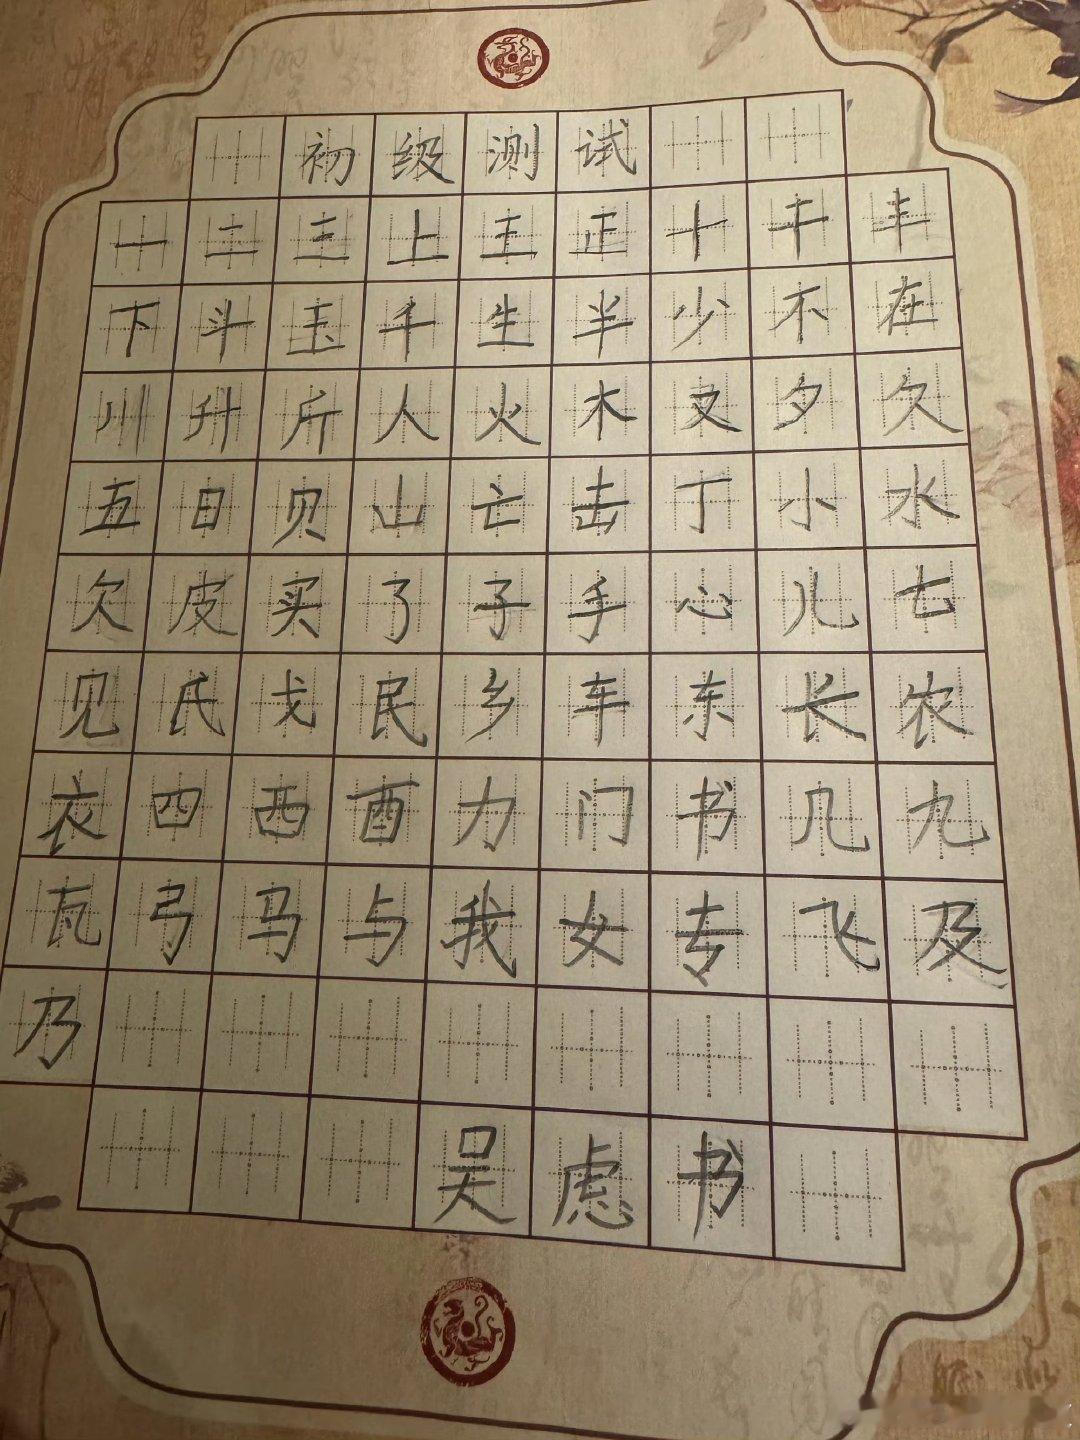 初级测试
一二三上王正十干丰
下斗玉千生半少不在
川升斤人火木叉夕久
五日贝山亡击丁小水
欠皮买了子手心儿七
见氏戈民乡车东长农
衣四西酉力门书几九
瓦弓马与我女专飞及
乃
吴虑书